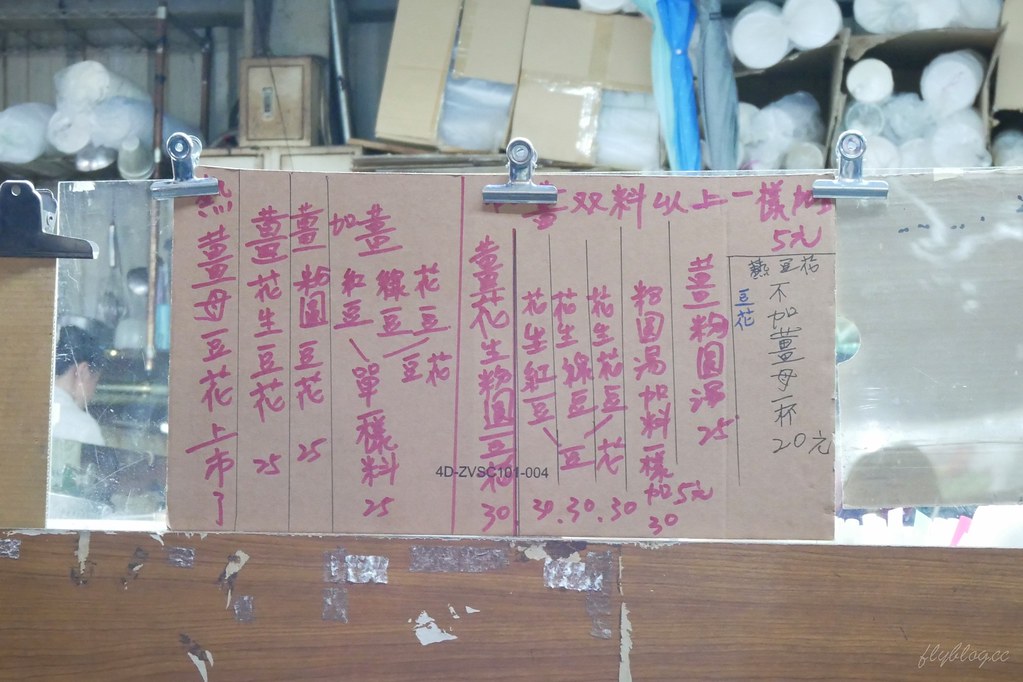 熱薑母豆花上市了
薑花生豆花 25
薑粉圓豆花 25
加薑
紅豆
綠豆
花豆
豆花
單樣料 25
薑双料以上一樣加
5元
薑花生粉圓豆花 30
花生紅豆
花生綠豆
花生花豆
豆花
30.30.30
粉圓湯加料一樣加5元
30
薑粉圓湯 25
熱豆花
豆花
不加薑母一杯20元
4D-ZVSC101-004
flyblog.cc